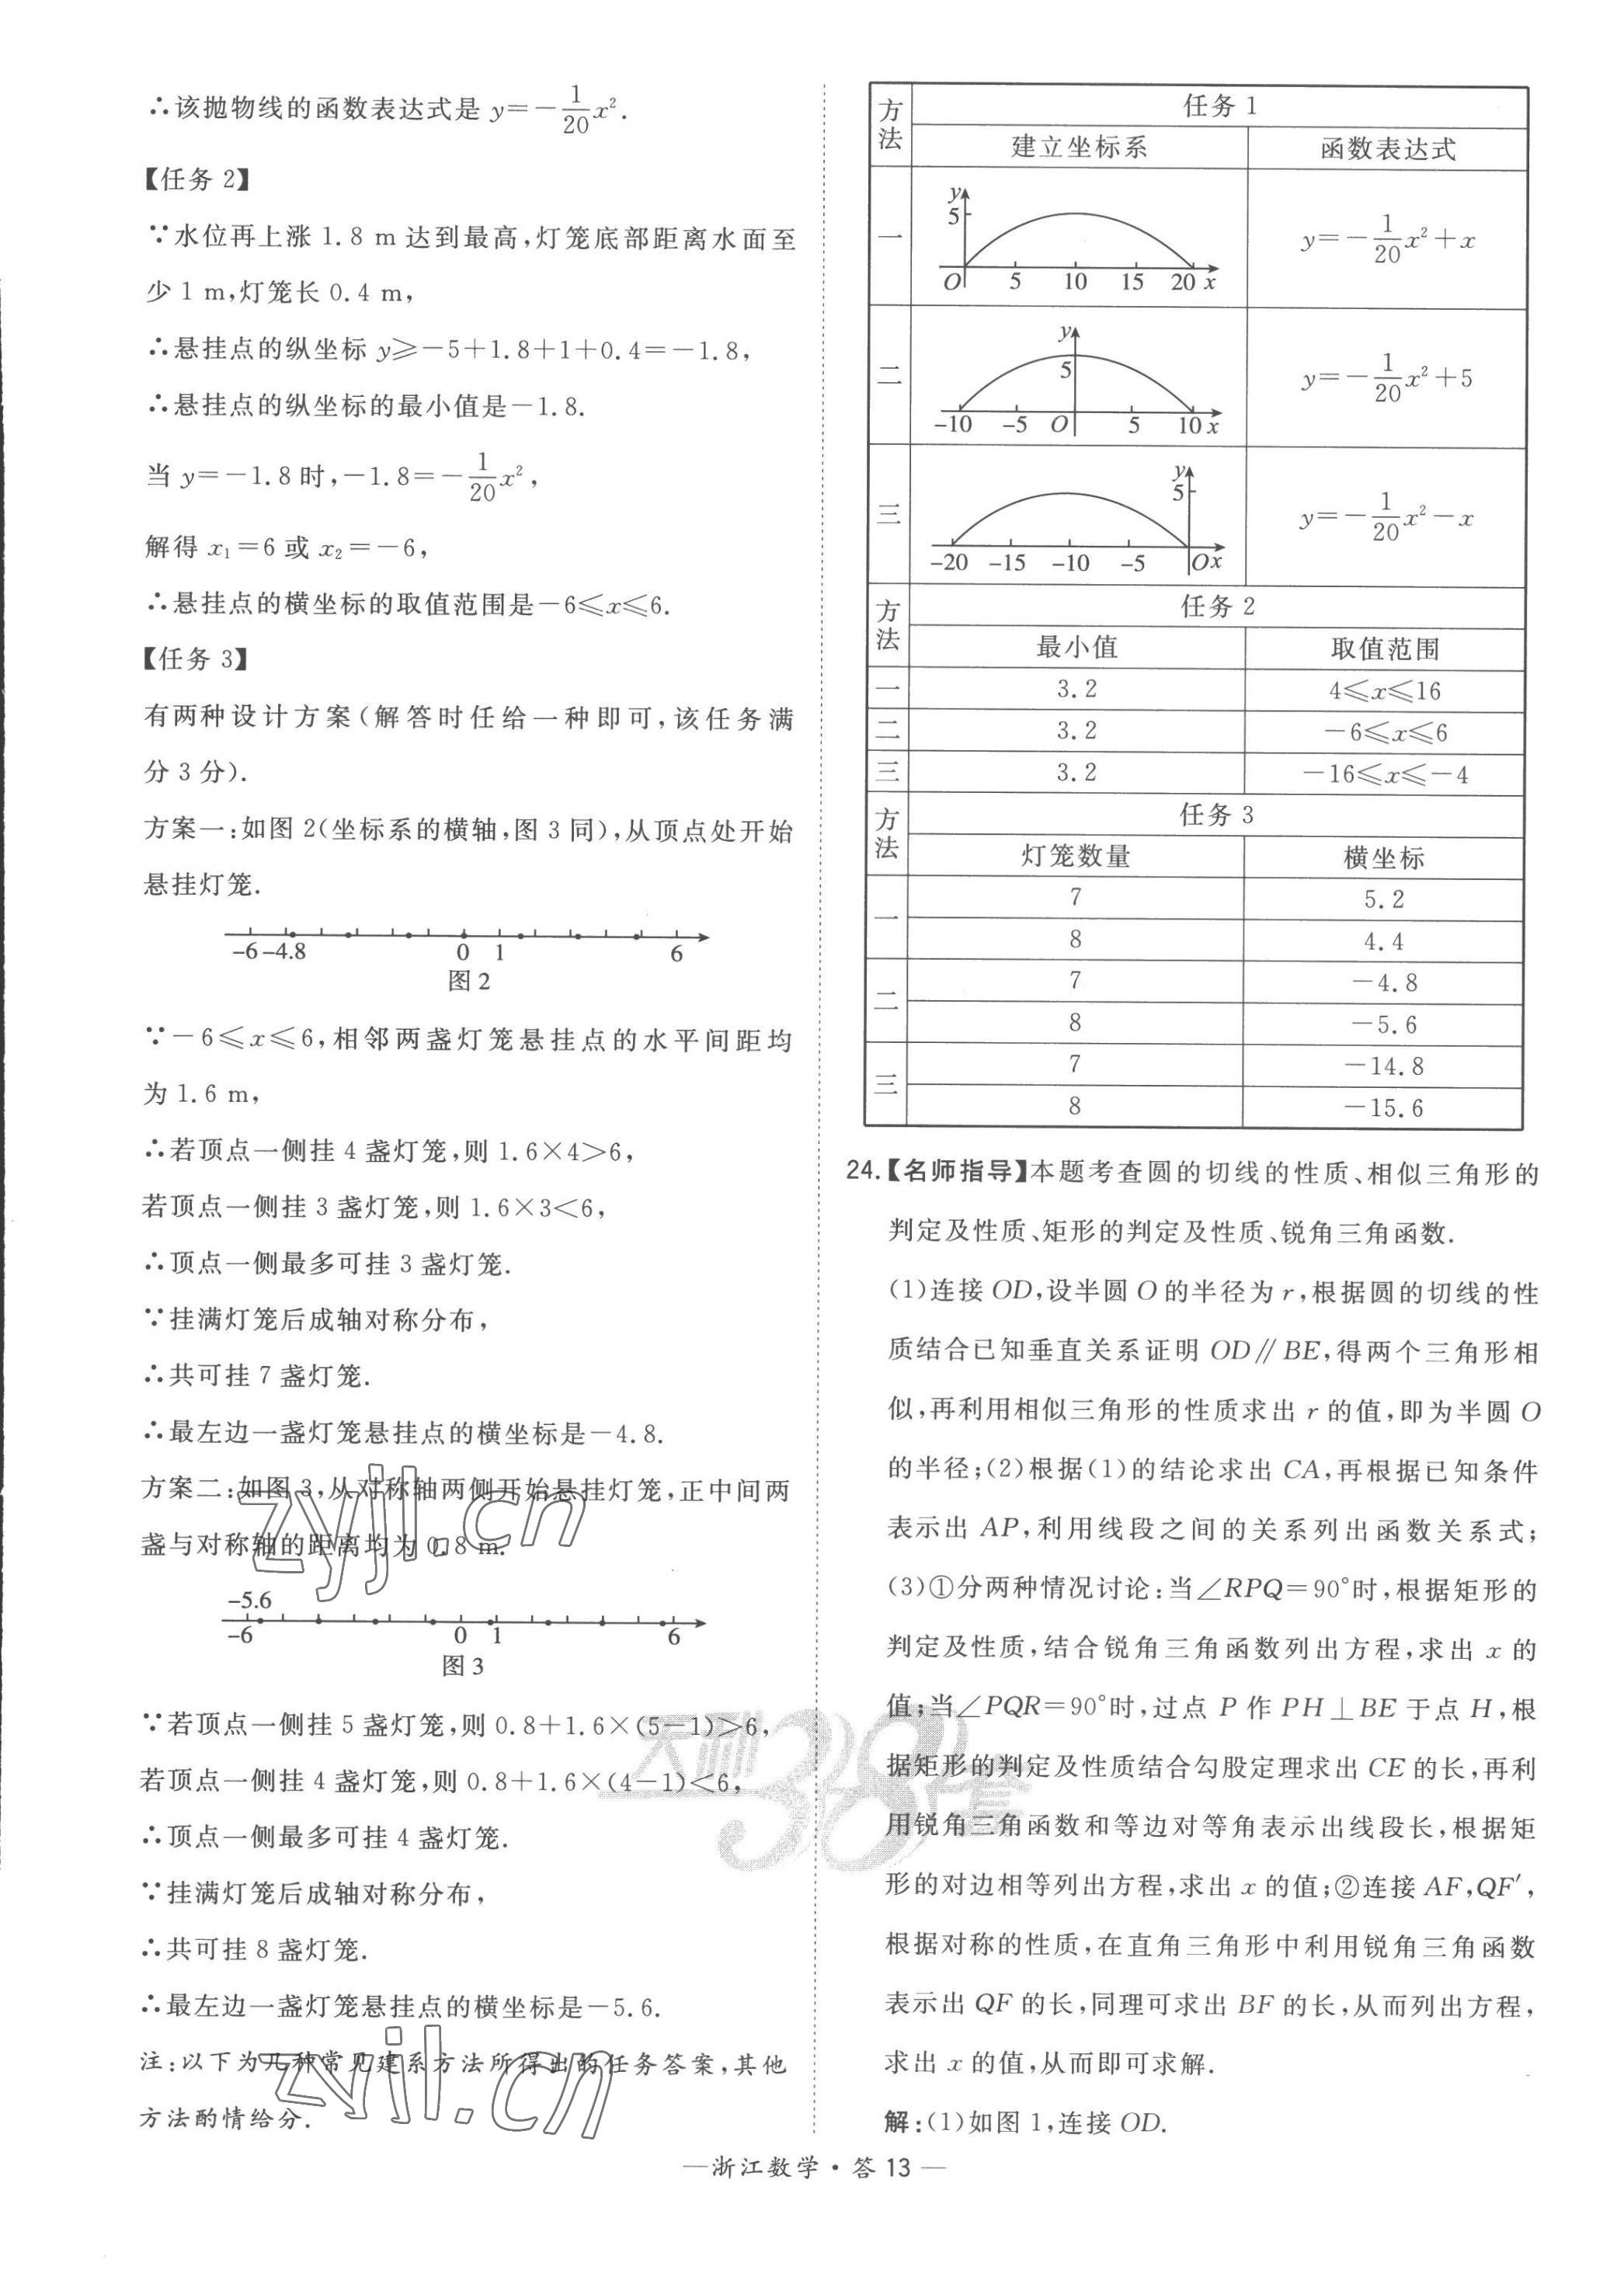 ∴该抛物线的函数表达式是 y=-1/20x².
【任务 2】
∵水位再上涨 1.8 m 达到最高,灯笼底部距离水面至
少 1 m,灯笼长 0.4 m,
∴悬挂点的纵坐标 y⩾-5+1.8+1+0.4=-1.8,
∴悬挂点的纵坐标的最小值是-1.8.
当 y=-1.8 时,-1.8=-1/20x²,
解得 x₁=6 或 x₂=-6,
∴悬挂点的横坐标的取值范围是-6⩽x⩽6.
【任务 3】
有两种设计方案(解答时任给一种即可,该任务满
分 3 分).
方案一:如图 2(坐标系的横轴,图 3 同),从顶点处开始
悬挂灯笼.
-6 -4.8 0 1 6
图 2
∵-6⩽x⩽6,相邻两盏灯笼悬挂点的水平间距均
为 1.6 m,
∴若顶点一侧挂 4 盏灯笼,则 1.6×4>6,
若顶点一侧挂 3 盏灯笼,则 1.6×3<6,
∴顶点一侧最多可挂 3 盏灯笼.
∵挂满灯笼后成轴对称分布,
∴共可挂 7 盏灯笼.
∴最左边一盏灯笼悬挂点的横坐标是-4.8.
方案二:如图 3,从对称轴两侧开始悬挂灯笼,正中间两
盏与对称轴的距离均为 0.8 m.
zyjl.cn
-5.6
-6 0 1 6
图 3
∵若顶点一侧挂 5 盏灯笼,则 0.8+1.6×(5-1)>6,
若顶点一侧挂 4 盏灯笼,则 0.8+1.6×(4-1)<6,
∴顶点一侧最多可挂 4 盏灯笼.
∵挂满灯笼后成轴对称分布,
∴共可挂 8 盏灯笼.
∴最左边一盏灯笼悬挂点的横坐标是-5.6.
注:以下为几种常见建系方法所得出的任务答案,其他
方法酌情给分.
zyjl.cn
方法 任务 1
建立坐标系 函数表达式
一 y 5 O 5 10 15 20 x y=-1/20x²+x
二 y 5 -10 -5 O 5 10 x y=-1/20x²+5
三 y 5 -20 -15 -10 -5 O x y=-1/20x²-x
方法 任务 2
最小值 取值范围
一 3.2 4⩽x⩽16
二 3.2 -6⩽x⩽6
三 3.2 -16⩽x⩽-4
方法 任务 3
灯笼数量 横坐标
一 7 5.2
8 4.4
二 7 -4.8
8 -5.6
三 7 -14.8
8 -15.6
24.【名师指导】本题考查圆的切线的性质、相似三角形的
判定及性质、矩形的判定及性质、锐角三角函数.
(1)连接 OD,设半圆 O 的半径为 r,根据圆的切线的性
质结合已知垂直关系证明 OD∥BE,得两个三角形相
似,再利用相似三角形的性质求出 r 的值,即为半圆 O
的半径;(2)根据(1)的结论求出 CA,再根据已知条件
表示出 AP,利用线段之间的关系列出函数关系式;
(3)①分两种情况讨论:当∠RPQ=90°时,根据矩形的
判定及性质,结合锐角三角函数列出方程,求出 x 的
值;当∠PQR=90°时,过点 P 作 PH⊥BE 于点 H,根
据矩形的判定及性质结合勾股定理求出 CE 的长,再利
用锐角三角函数和等边对等角表示出线段长,根据矩
形的对边相等列出方程,求出 x 的值;②连接 AF,QF′,
根据对称的性质,在直角三角形中利用锐角三角函数
表示出 QF 的长,同理可求出 BF 的长,从而列出方程,
求出 x 的值,从而即可求解.
解:(1)如图 1,连接 OD.
天利38套
—浙江数学·答 13—